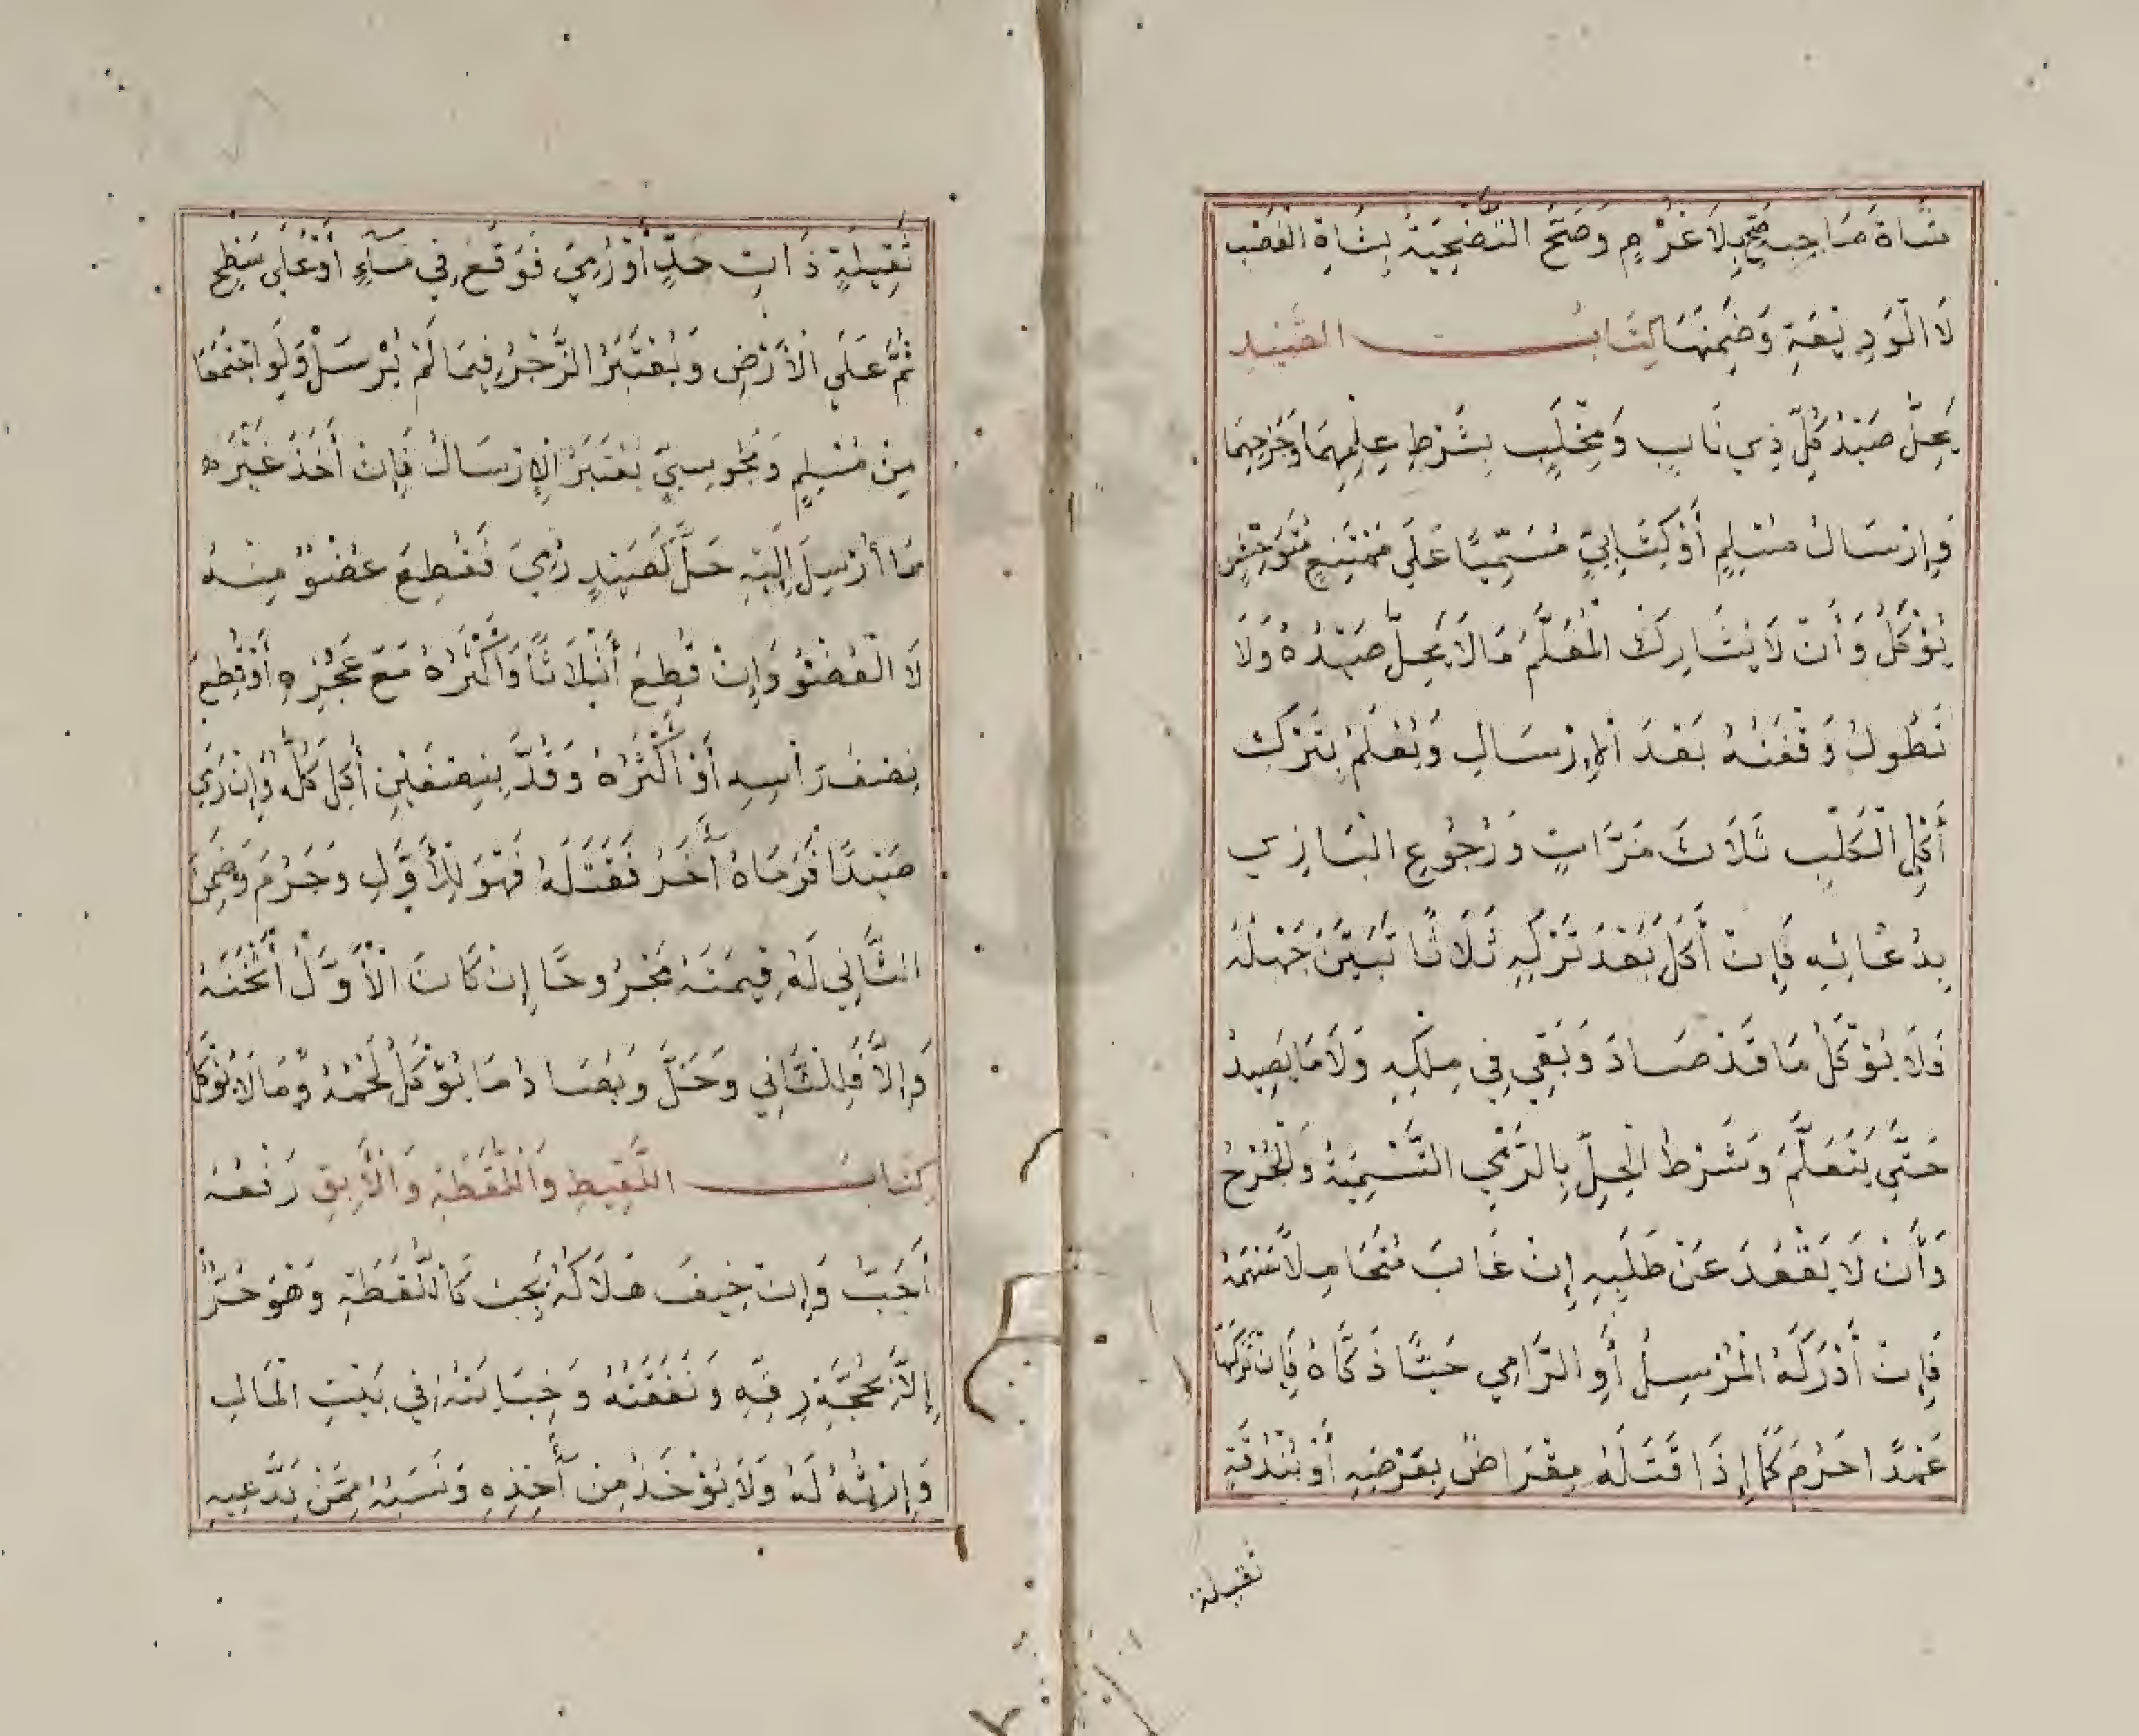 شَاةَ صَاحِبِهِ صَحَّ بِلَا غُرْمٍ وَصَحَّ التَّضْحِيَةُ بِشَاةِ الْغَصْبِ
لَا الْوَدِيْعَةِ وَضَمِنَهَا كِتَابُ الصَّيْدِ
يَحِلُّ صَيْدُ كُلِّ ذِي نَابٍ وَمِخْلَبٍ بِشَرْطِ عِلْمِهِمَا وَجَرْحِهِمَا
وَإِرْسَالُ مُسْلِمٍ أَوْ كِتَابِيٍّ مُسَمِّيًا عَلَى مُمْتَنِعٍ مُتَوَحِّشٍ
يُؤْكَلُ وَأَنْ لَا يُشَارِكَ الْمُعَلَّمُ مَا لَا يَحِلُّ صَيْدُهُ وَلَا
تَطُولُ وَقْفَتُهُ بَعْدَ الْإِرْسَالِ وَيُعْلَمُ بِتَرْكِ
أَكْلِ الْكَلْبِ ثَلَاثَ مَرَّاتٍ وَرُجُوعِ الْبَازِي
بِدُعَائِهِ فَإِنْ أَكَلَ بَعْدَ تَرْكِهِ ثَلَاثًا تَبَيَّنَ جَهْلُهُ
وَلَا يُؤْكَلُ مَا قَدْ صَادَ وَبَقِيَ فِي مِلْكِهِ وَلَا مَا يَصِيدُ
حَتَّى يَتَعَلَّمَ وَشَرْطُ الْحِلِّ بِالرَّمْيِ التَّسْمِيَةُ وَالْجُرْحُ
وَأَنْ لَا يَقْعُدَ عَنْ طَلَبِهِ إِنْ غَابَ مُتَحَامِلًا سَهْمَهُ
فَإِنْ أَدْرَكَهُ الْمُرْسِلُ أَوِ الرَّامِي حَيًّا ذَكَّاهُ فَإِنْ تَرَكَهَا
عَمْدًا حَرُمَ كَمَا إِذَا قَتَلَهُ مِعْرَاضٌ بِعَرْضِهِ أَوْ بُنْدُقَةٍ
ثقيلة
ثَقِيلَةٍ ذَاتِ حَدٍّ أَوْ رُمِيَ فَوَقَعَ فِي مَاءٍ أَوْ عَلَى سَطْحٍ
ثُمَّ عَلَى الْأَرْضِ وَيُعْتَبَرُ الزَّجْرُ فِيمَا لَمْ يُرْسَلْ وَلَوِ اجْتَمَعَا
مِنْ مُسْلِمٍ وَمَجُوسِيٍّ يُعْتَبَرُ الْإِرْسَالُ فَإِنْ أَخَذَ غَيْرَه
مَا أُرْسِلَ إِلَيْهِ حَلَّ كَصَيْدٍ رُمِيَ فَقُطِعَ عُضْوٌ مِنْهُ
لَا الْعُضْوُ وَإِنْ قُطِعَ أَثْلَاثًا وَأَكْثَرُهُ مَعَ عَجُزِهِ أَوْ قُطِعَ
نِصْفُ رَأْسِهِ أَوْ أَكْثَرُهُ وَقُدَّ بِنِصْفَيْنِ أُكِلَ كُلُّهُ وَإِنْ رَمَى
صَيْدًا فَرَمَاهُ آخَرُ فَقَتَلَهُ فَهُوَ لِلْأَوَّلِ وَحَرُمَ وَضَمِنَ
الثَّانِي لَهُ قِيمَتَهُ مَجْرُوحًا إِنْ كَانَ الْأَوَّلُ أَثْخَنَهُ
وَإِلَّا فَلِلثَّانِي وَحَلَّ وَيُصَادُ مَا يُؤْكَلُ لَحْمُهُ وَمَا لَا يُؤْكَلُ
كِتَابُ اللَّقِيطِ وَاللُّقَطَةِ وَالْآبِقِ رَفْعُهُ
أَحَبُّ وَإِنْ خِيفَ هَلَاكُهُ يَجِبُ كَاللُّقَطَةِ وَهُوَ حُرٌّ
إِلَّا بِحُجَّةِ رِقِّهِ وَنَفَقَتُهُ وَجِنَايَتُهُ فِي بَيْتِ الْمَالِ
وَإِرْثُهُ لَهُ وَلَا يُؤْخَذُ مِنْ آخِذِهِ وَنَسَبُهُ مِمَّنْ يَدَّعِيهِ